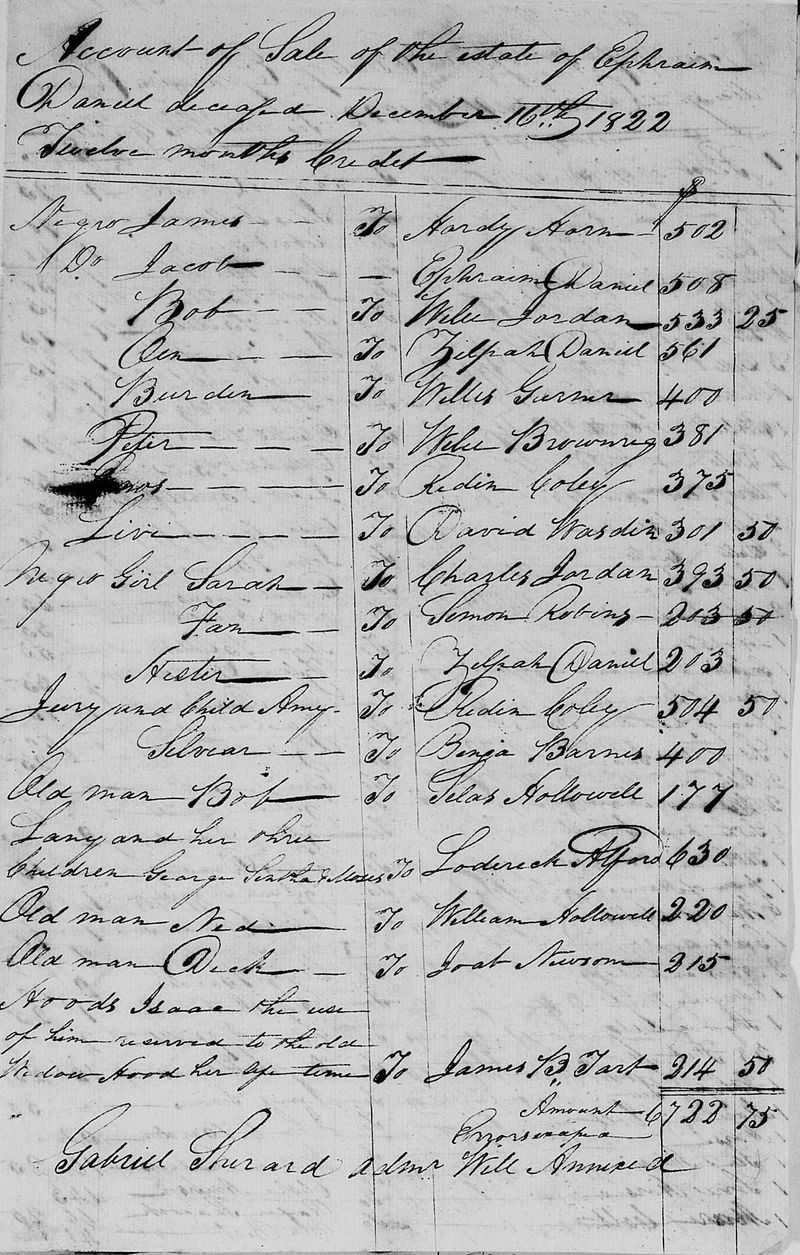 Account of Sale of the estate of Ephraim
Daniel deceased December 16th 1822
Twelve months Credit
$
Negro James To Hardy Horn 502
Do Jacob Ephraim Daniel 508
Bob To Wilie Jordan 533 25
Ben To Zilpah Daniel 561
Burden To Willis Gurner 400
Peter To Wilie Brownreg 381
To Redin Coley 375
Livi To David Wasdin 301 50
Negro Girl Sarah To Charles Jordan 393 50
Fan To Simon Robins 203 50
Hester To Zilpah Daniel 203
Jury and Child Amy To Redin Coley 504 50
Silviar To Benja Barnes 400
Old man Bob To Silas Hollowell 177
Lany and her three
Children George Sintha & Moses To Loderick Alford 630
Old man Ned To William Hollowell 220
Old man Dick To Joab Newsom 215
Hoods Isaac the use
of him reserved to the old
Widow Hood her life time To James B Tart 214 50
Amount 6722 75
Errors excepted
Gabriel Sherard admr Will Annexed